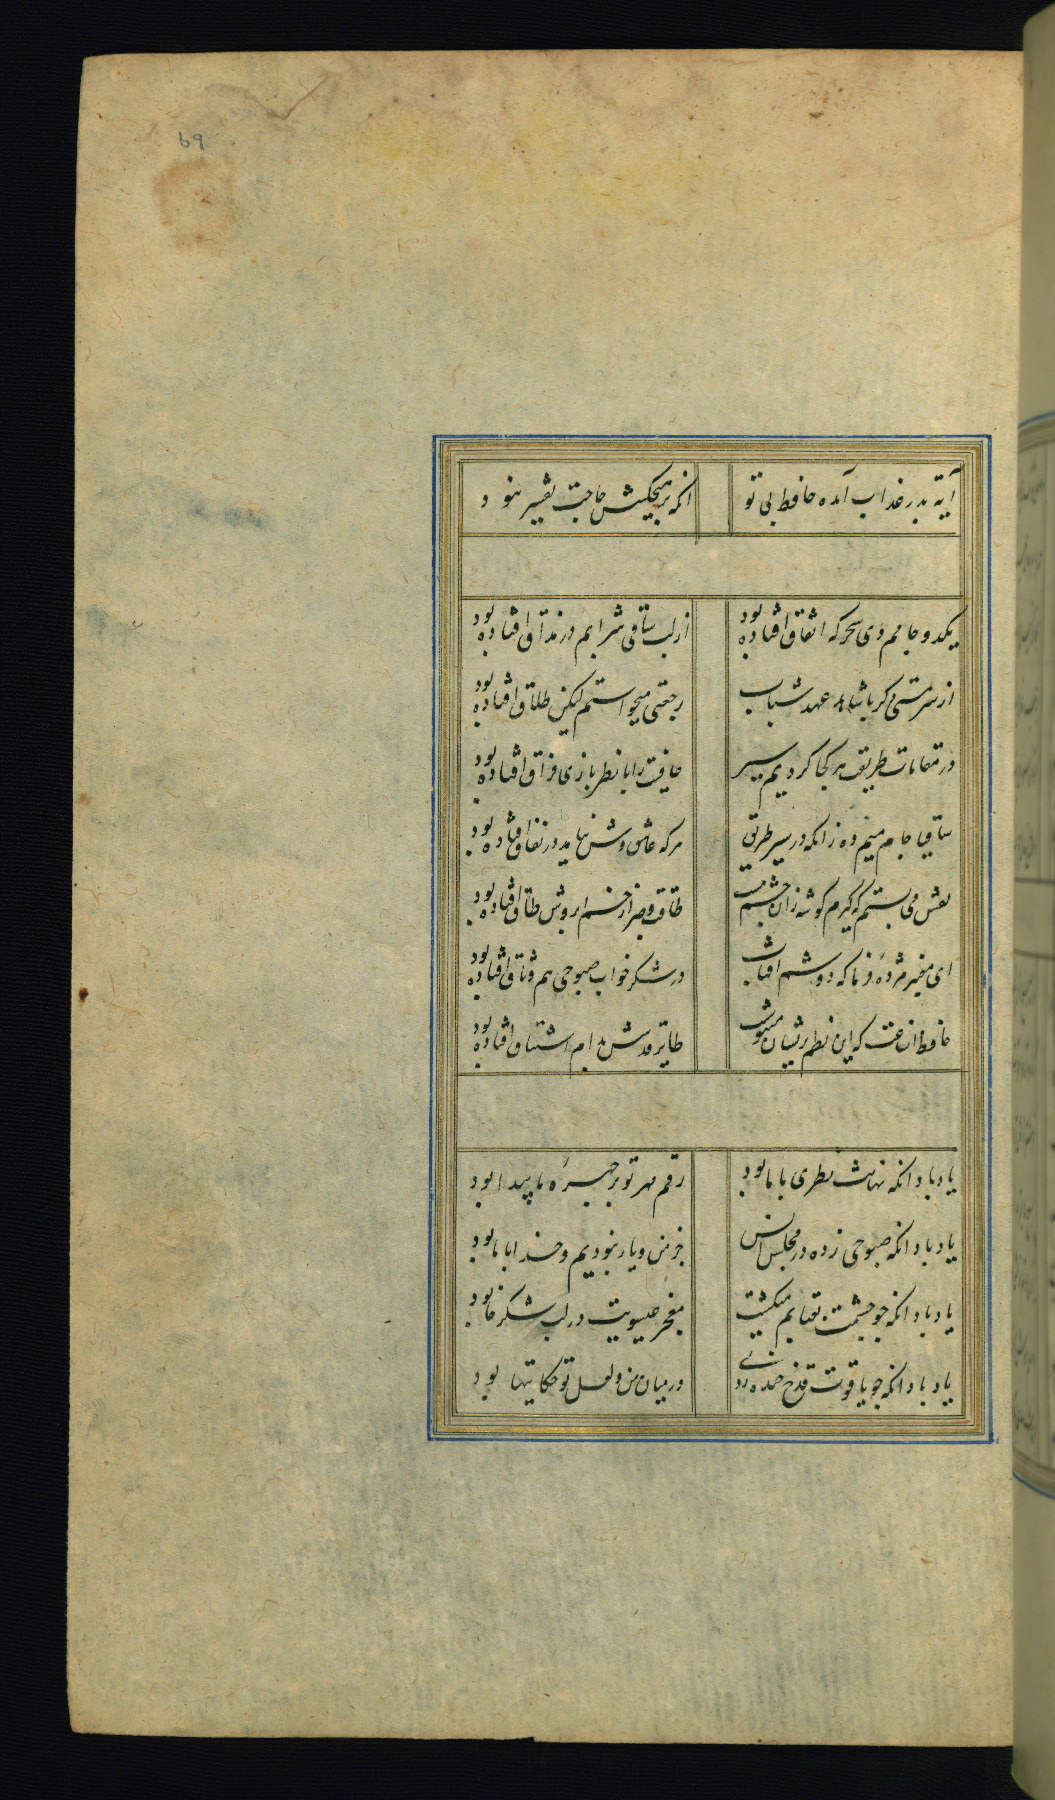 69
آیة بد ز عذاب آمده حافظ بی تو انکه بر هیچکسش حاجت تفسیر نبود
یکد و جامم دی سحرکه اتفاق افتاده بود از لب ساقی شرابم در مذاق افتاده بود
از سر مستی دکر با شاهد عهد شباب رجعتی میخواستم لیکن طلاق افتاده بود
در مقامات طریقت هر کجا کردیم سیر عافیت را با نظر بازی فراق افتاده بود
ساقیا جام میم ده زانکه در سیر طریق هر که عاشق وش نیامد در نفاق افتاده بود
نقش می بستم که گیرم کوشه زان چشم مست طاقت و صبر از خم ابروش طاق افتاده بود
ای مغبر مژده فرما که دوشم افتاب در شکر خواب صبوحی هم وثاق افتاده بود
حافظ ان ساعت که این نظم پریشان مینوشت طایر قدسش بدام اشتیاق افتاده بود
یاد باد انکه نهانت نظری با ما بود رقم مهر تو بر چهرهٔ ما پیدا بود
یاد باد انکه صبوحی زده در مجلس انس جز من و یار نبودیم و خدا با ما بود
یاد باد انکه چو چشمت بعتابم میکشت معجز عیسویت در لب شکر خا بود
یاد باد انکه چو یاقوت قدح خنده زدی در میان من و لعل تو حکایتها بود